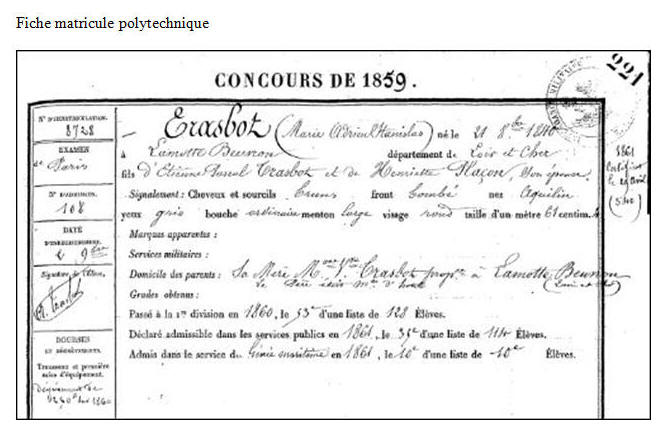 Fiche matricule polytechnique
221
CONCOURS DE 1859.
N° D'IMMATRICULATION.
8728
EXAMEN
de Paris
N° D'ADMISSION.
108
DATE
D'ENREGISTREMENT.
Signature de l'Élève.
BOURSES
ET DÉGRÈVEMENTS.
Trousseau et première
mise d'équipement.
Trasbot (Marie Adrien Stanislas) né le 21 8bre 1840
à Lamotte Beuvron département de Loir et Cher
fils d'Étienne Pascal Trasbot et de Henriette Maçon, son épouse
Signalement : Cheveux et sourcils bruns front bombé nez aquilin
yeux gris bouche ordinaire menton large visage rond taille d'un mètre 61 centim.
Marques apparentes :
Services militaires :
Domicile des parents : Sa Mère Mme Vve Trasbot propre à Lamotte Beuvron
(Loir et Cher)
Grades obtenus :
Passé à la 1re division en 1860, le 53e d'une liste de 128 Élèves.
Déclaré admissible dans les services publics en 1861, le 35e d'une liste de 114 Élèves.
Admis dans le service du Génie maritime en 1861, le 10e d'une liste de 10e Élèves.
1861